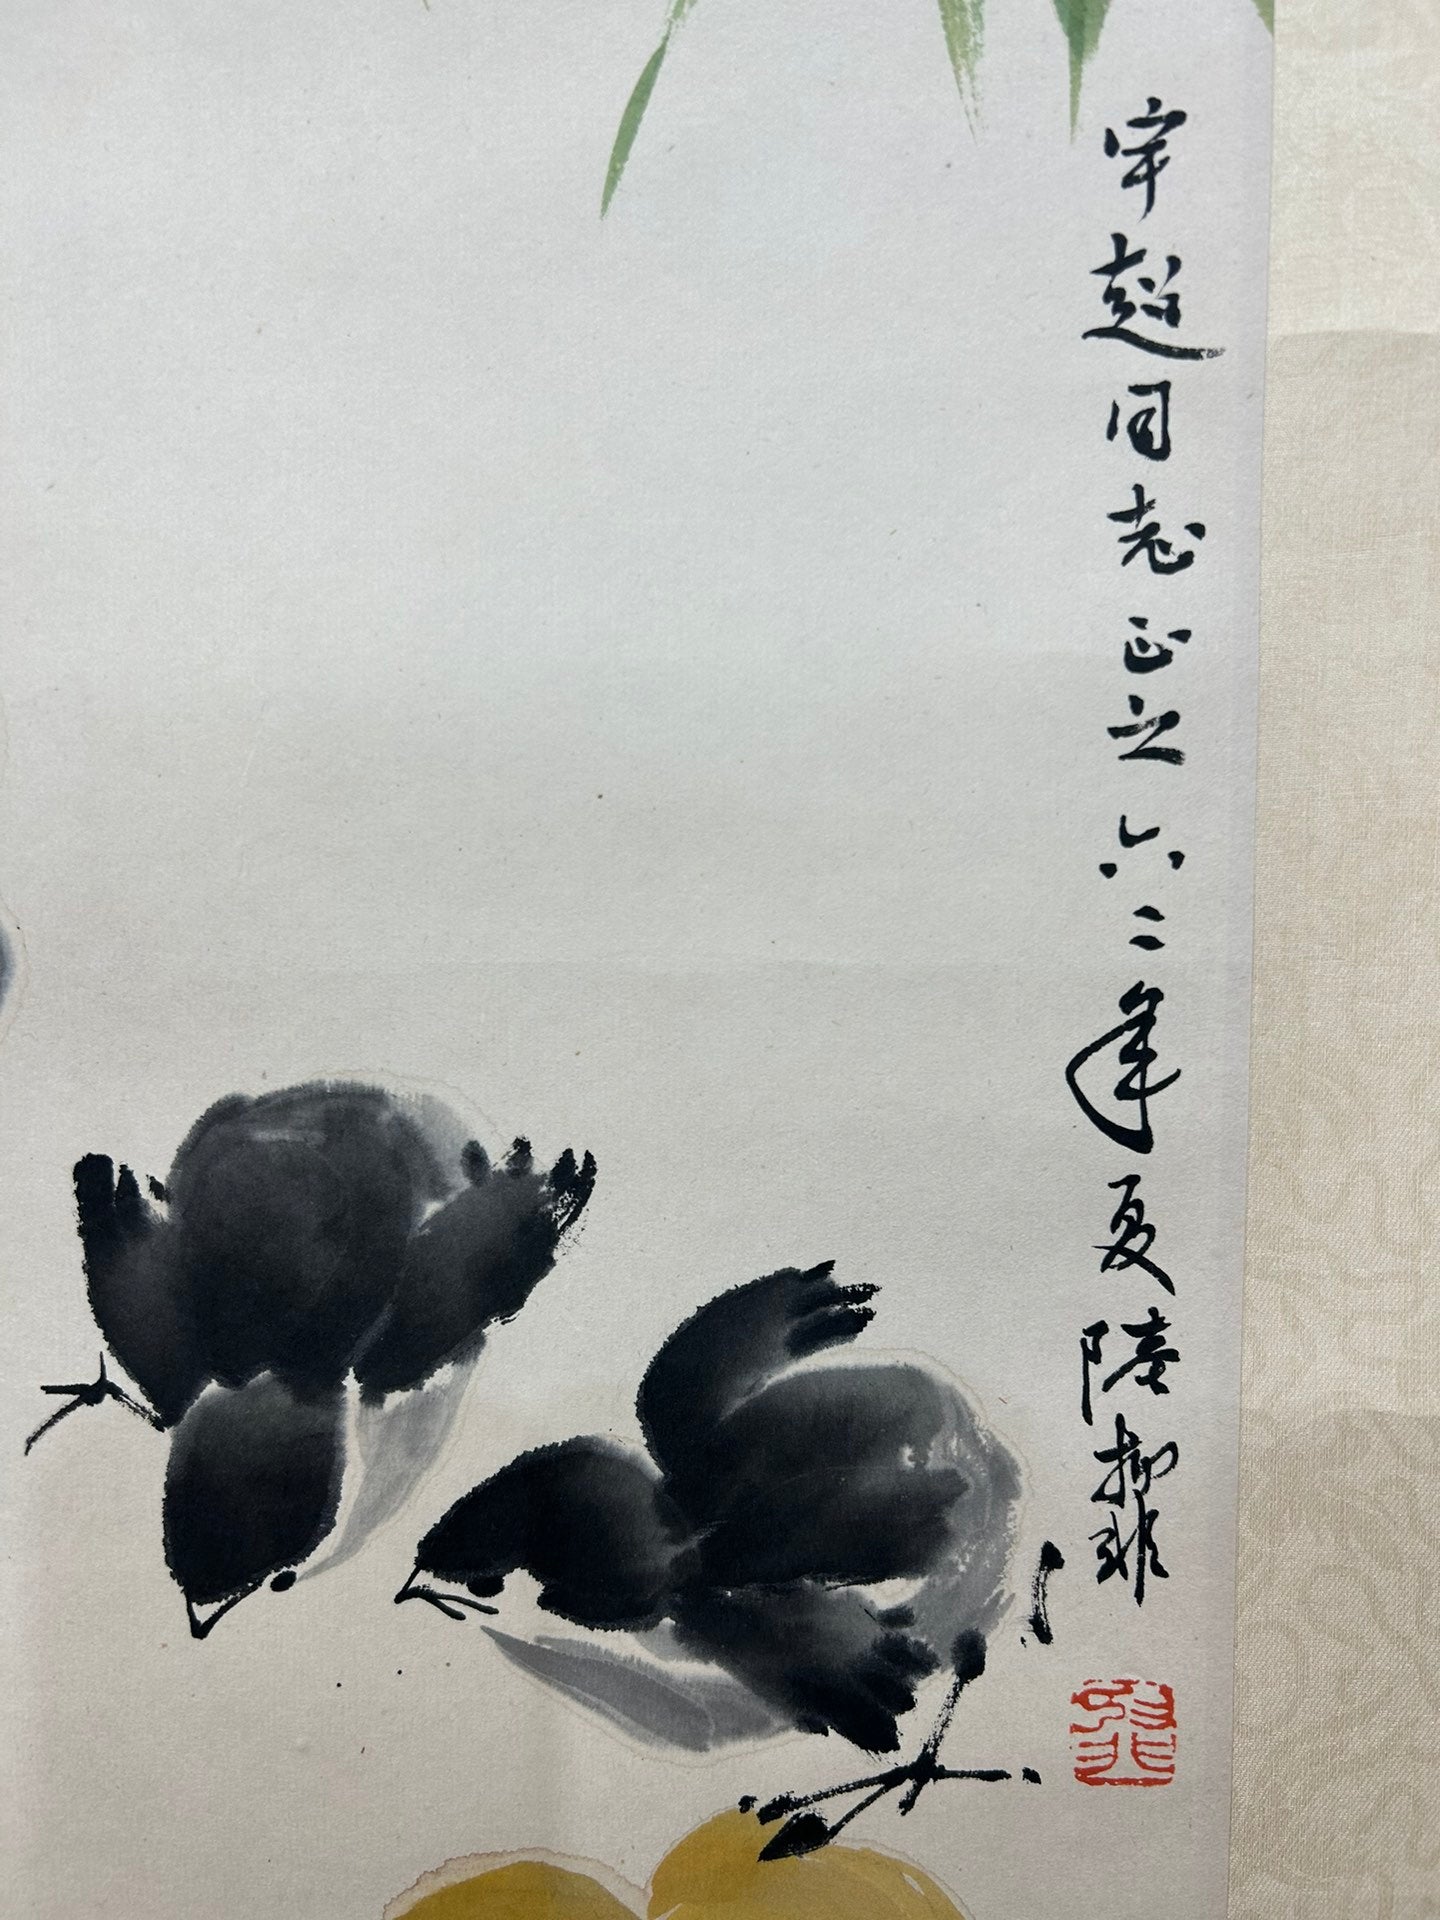 宇超同志正之六二年夏陸抑非